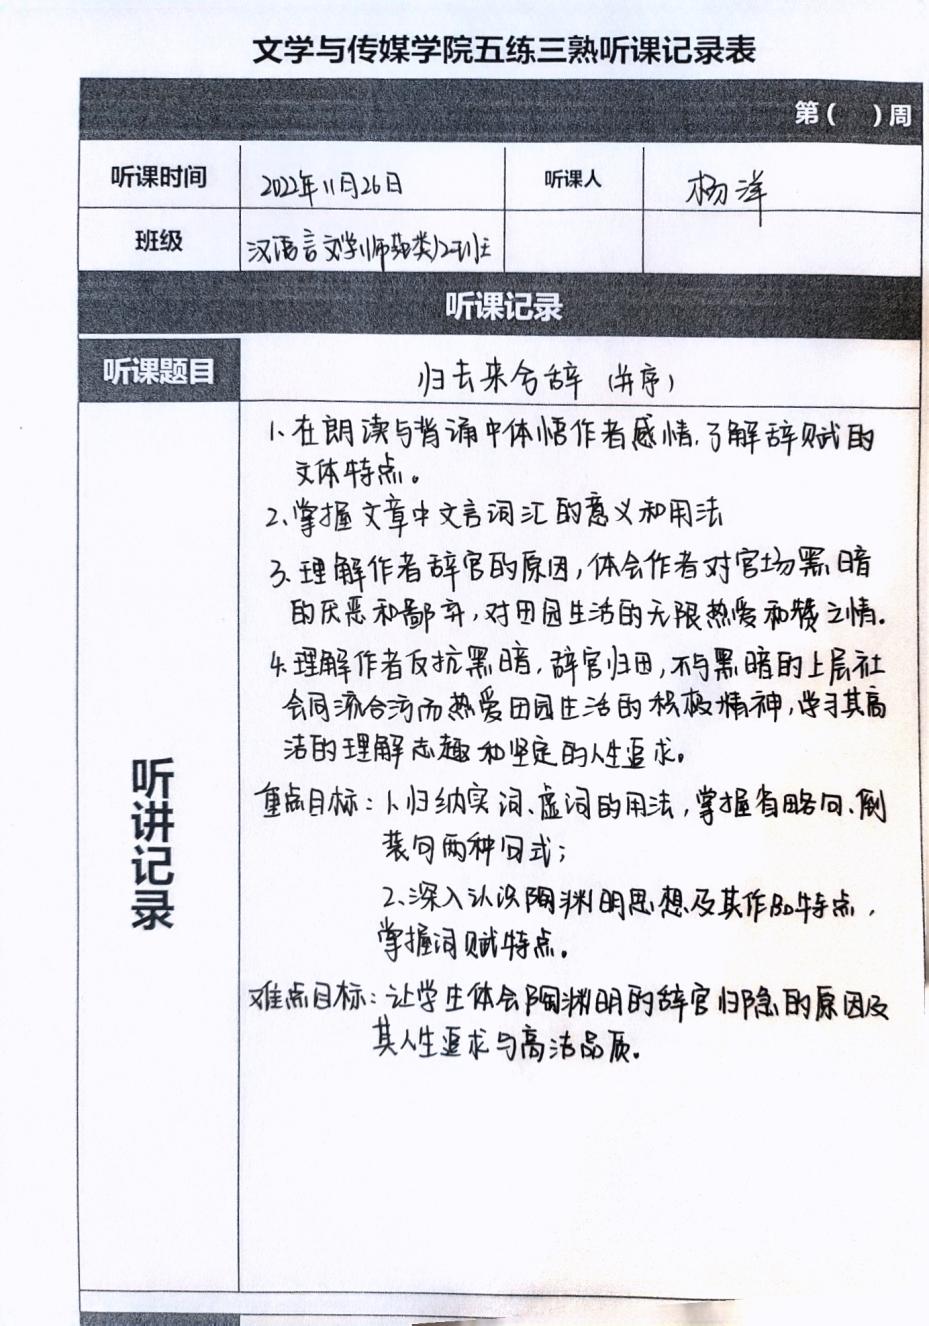 文学与传媒学院五练三熟听课记录表
第( )周
听课时间 2022年11月26日 听课人 杨洋
班级 汉语言文学(师范类)2班
听课记录
听课题目 归去来兮辞(并序)
听讲记录
1、在朗读与背诵中体悟作者感情,了解辞赋的
文体特点。
2、掌握文章中文言词汇的意义和用法
3、理解作者辞官的原因,体会作者对官场黑暗
的厌恶和鄙弃,对田园生活的无限热爱和赞之情。
4、理解作者反抗黑暗,辞官归田,不与黑暗的上层社
会同流合污而热爱田园生活的积极精神,学习其高
洁的理解志趣和坚定的人生追求。
重点目标:1、归纳实词、虚词的用法,掌握省略句、倒
装句两种句式;
2、深入认识陶渊明思想及其作品特点,
掌握词赋特点。
难点目标:让学生体会陶渊明的辞官归隐的原因及
其人生追求与高洁品质。